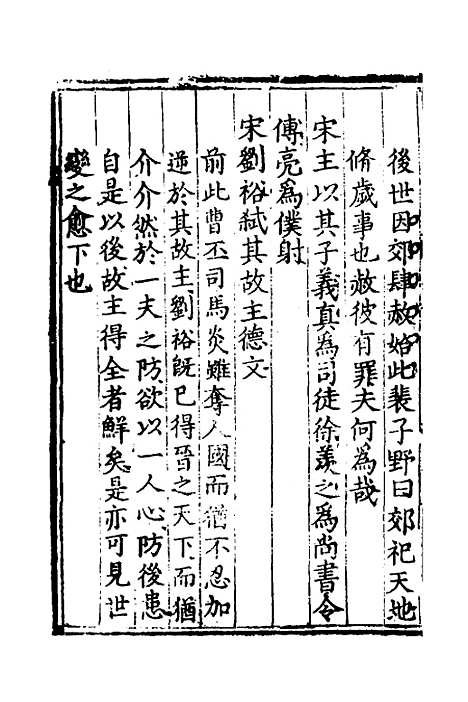 後世因郊肆赦始此裴子野曰郊祀天地
脩歲事也赦彼有罪夫何為哉
宋主以其子義真為司徒徐羨之為尚書令
傅亮為僕射
宋劉裕弑其故主德文
前此曹丕司馬炎雖奪人國而猶不忍加
逆於其故主劉裕既已得晉之天下而猶
介介然於一夫之防欲以一人心防後患
自是以後故主得全者鮮矣是亦可見世
變之愈下也